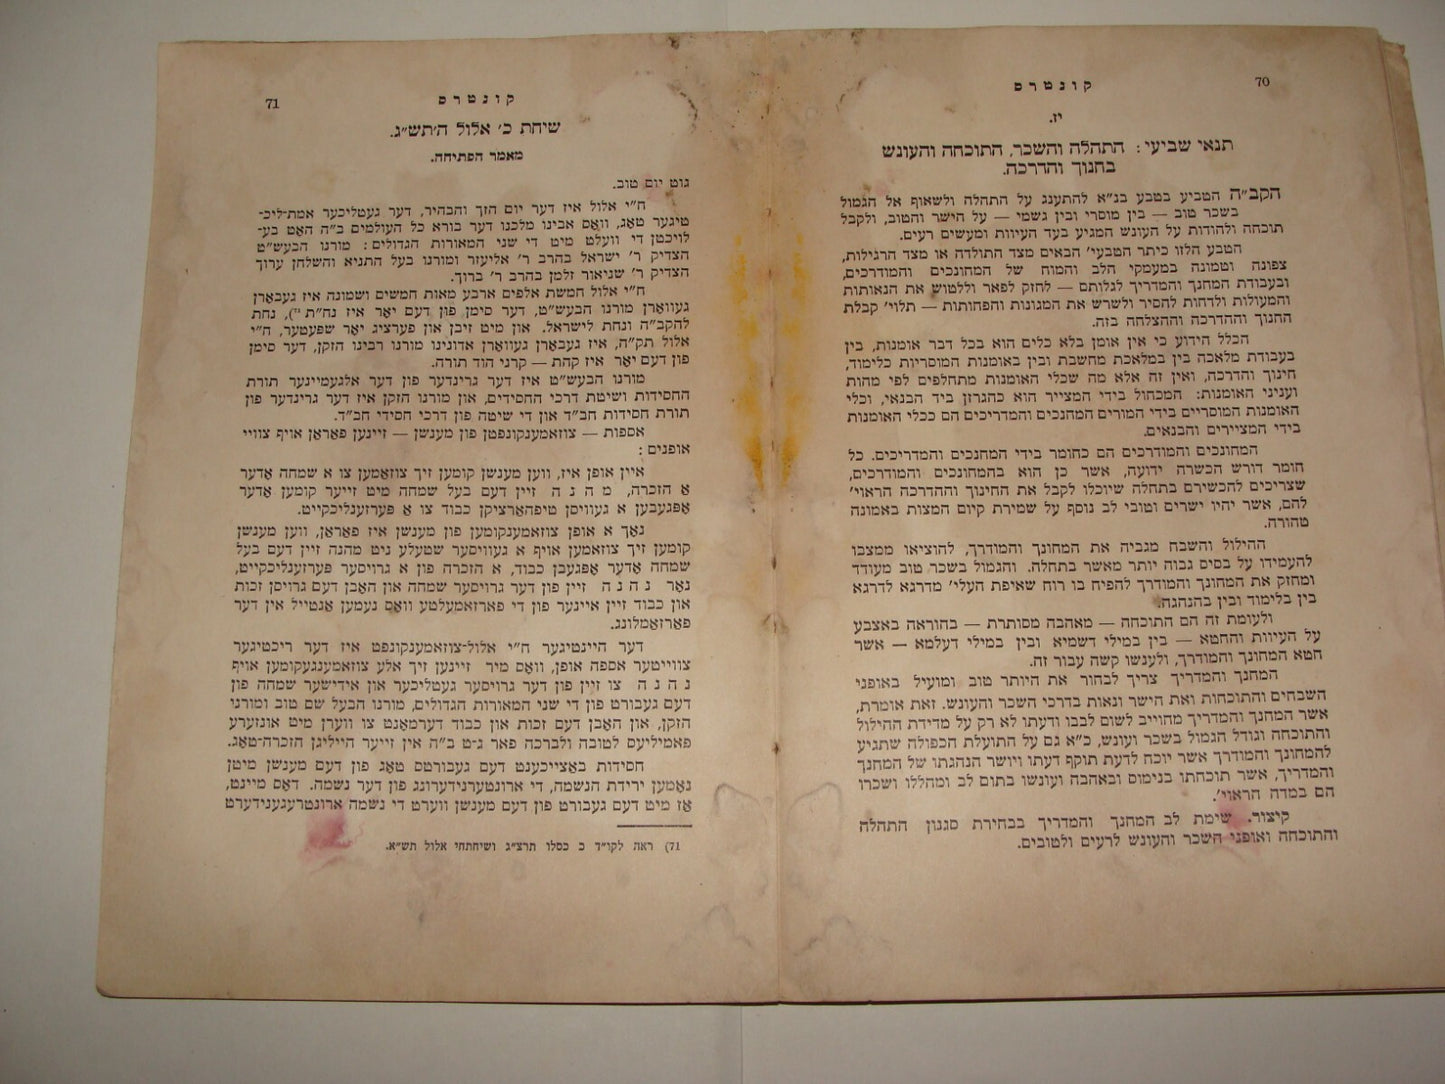 70
קונטרס
יז.
תנאי שביעי: התהלה והשכר, התוכחה והעונש
בחנוך והדרכה.
הקב״ה הטביע בטבע בנ״א להתענג על התהלה ולשאוף אל הגמול
בשכר טוב — בין מוסרי ובין גשמי — על הישר והטוב, ולקבל
תוכחה ולהודות על העונש המגיע בעד העיוות ומעשים רעים.
הטבע הלזו כיתר הטבעי׳ הבאים מצד התולדה או מצד הרגילות,
צפונה וטמונה במעמקי הלב והמוח של המחונכים והמודרכים,
ובעבודת המחנך והמדריך לגלותם — לחזק לפאר וללטוש את הנאותות
והמעולות ולדחות להסיר ולשרש את המגונות והפחותות — תלוי׳ קבלת
החנוך וההדרכה וההצלחה בזה.
הכלל הידוע כי אין אומן בלא כלים הוא בכל דבר אומנות, בין
בעבודת מלאכה בין במלאכת מחשבת ובין באומנות המוסריות כלימוד,
חינוך והדרכה, ואין זה אלא מה שכלי האומנות מתחלפים לפי מהות
ועניני האומנות: המכחול בידי המצייר הוא כהגרזן ביד הבנאי, וכלי
האומנות המוסריים בידי המורים המחנכים והמדריכים הם ככלי האומנות
בידי המציירים והבנאים.
המחונכים והמודרכים הם כחומר בידי המחנכים והמדריכים. כל
חומר דורש הכשרה ידועה, אשר כן הוא בהמחונכים והמודרכים,
שצריכים להכשירם בתחלה שיוכלו לקבל את החינוך וההדרכה הראוי׳
להם, אשר יהיו ישרים וטובי לב נוסף על שמירת קיום המצות באמונה
טהורה.
ההילול והשבח מגביה את המחונך והמודרך, להוציאו ממצבו
להעמידו על בסיס גבוה יותר מאשר בתחלה. והגמול בשכר טוב מעודד
ומחזק את המחונך והמודרך להפיח בו רוח שאיפת העלי׳ מדרגא לדרגא
בין בלימוד ובין בהנהגה.
ולעומת זה הם התוכחה — מאהבה מסותרת — בהוראה באצבע
על העיוות והחטא — בין במילי דשמיא ובין במילי דעלמא — אשר
חטא המחונך והמודרך, ולענשו קשה עבור זה.
המחנך והמדריך צריך לבחור את היותר טוב ומועיל באופני
השבחים והתוכחות ואת הישר ונאות בדרכי השכר והעונש. זאת אומרת,
אשר המחנך והמדריך מחוייב לשום לבבו ודעתו לא רק על מדידת ההילול
והתוכחה וגודל הגמול בשכר ועונש, כ״א גם על התועלת הכפולה שתגיע
להמחונך והמודרך אשר יוכח לדעת תוקף דעתו ויושר הנהגתו של המחנך
והמדריך, אשר תוכחתו בנימוס ובאהבה ועונשו בתום לב ומהללו ושכרו
הם במדה הראוי׳.
קיצור. שימת לב המחנך והמדריך בבחירת סגנון התהלה
והתוכחה ואופני השכר והעונש לרעים ולטובים.
71
קונטרס
שיחת כ׳ אלול ה׳תש״ג.
מאמר הפתיחה.
גוט יום טוב.
ח״י אלול איז דער יום הזך והבהיר, דער געטליכער אמת-ליכ־
טיגער טאָג, וואָס אבינו מלכנו דער בורא כל העולמים ב״ה האָט בע־
לויכטן די וועלט מיט די שני המאורות הגדולים: מורנו הבעש״ט
הצדיק ר׳ ישראל בהרב ר׳ אליעזר ומורנו בעל התניא והשלחן ערוך
הצדיק ר׳ שניאור זלמן בהרב ר׳ ברוך.
ח״י אלול חמשת אלפים ארבע מאות חמשים ושמונה איז געבאָרן
געוואָרן מורנו הבעש״ט, דער סימן פון דעם יאָר איז נח״ת, נחת
להקב״ה ונחת לישראל. און מיט זיבן און פערציג יאָר שפּעטער, ח״י
אלול תק״ה, איז געבאָרן געוואָרן אדונינו מורנו רבינו הזקן, דער סימן
פון דעם יאָר איז קהת — קרני הוד תורה.
מורנו הבעש״ט איז דער גרינדער פון דער אלגעמיינער תורת
החסידות ושיטת דרכי החסידים, און מורנו הזקן איז דער גרינדער פון
תורת חסידות חב״ד און די שיטה פון דרכי חסידי חב״ד.
אספות — צוזאמענקונפטן פון מענשן — זיינען פאַראַן אויף צוויי
אופנים:
איין אופן איז, ווען מענשן קומען זיך צוזאַמען צו א שמחה אָדער
אַ הזכרה, מהנה זיין דעם בעל שמחה מיט זייער קומען אָדער
אָפּגעבן א געוויסן טיפהאַרציקן כבוד צו אַ פּערזענליכקייט.
נאָך א אופן צוזאמענקומען פון מענשן איז פאַראַן, ווען מענשן
קומען זיך צוזאמען אויף א געוויסער שטעלע ניט מהנה זיין דעם בעל
שמחה אָדער אָפּגעבן כבוד, א הזכרה פון א גרויסער פּערזענליכקייט,
נאָר נהנה זיין פון דער גרויסער שמחה און האָבן דעם גרויסן זכות
און כבוד זיין איינער פון די פארזאמעלטע וואָס נעמען אָנטייל אין דער
פאַרזאַמלונג.
דער היינטיגער ח״י אלול-צוזאמענקונפט איז דער ריכטיגער
צווייטער אספה אופן, וואָס מיר זיינען זיך אלע צוזאמענגעקומען אויף
נהנה צו זיין פון דער גרויסער געטליכער און אידישער שמחה פון
דעם געבורט פון די שני המאורות הגדולים, מורנו הבעל שם טוב ומורנו
הזקן, און האָבן דעם זכות און כבוד דערמאָנט צו ווערן מיט אונזערע
פאמיליעס לטובה ולברכה פאר ג-ט ב״ה אין זייער הייליגן הזכרה-טאָג.
חסידות באַצייכענט דעם געבורטס טאָג פון דעם מענשן מיטן
נאָמען ירידת הנשמה, די ארונטערנידערונג פון דער נשמה. דאָס מיינט,
אַז מיט דעם געבורט פון דעם מענשן ווערט די נשמה ארונטרעגענידערט
71) ראה לקו״ד כ כסלו תרצ״ג ושיחתחי אלול תש״א.